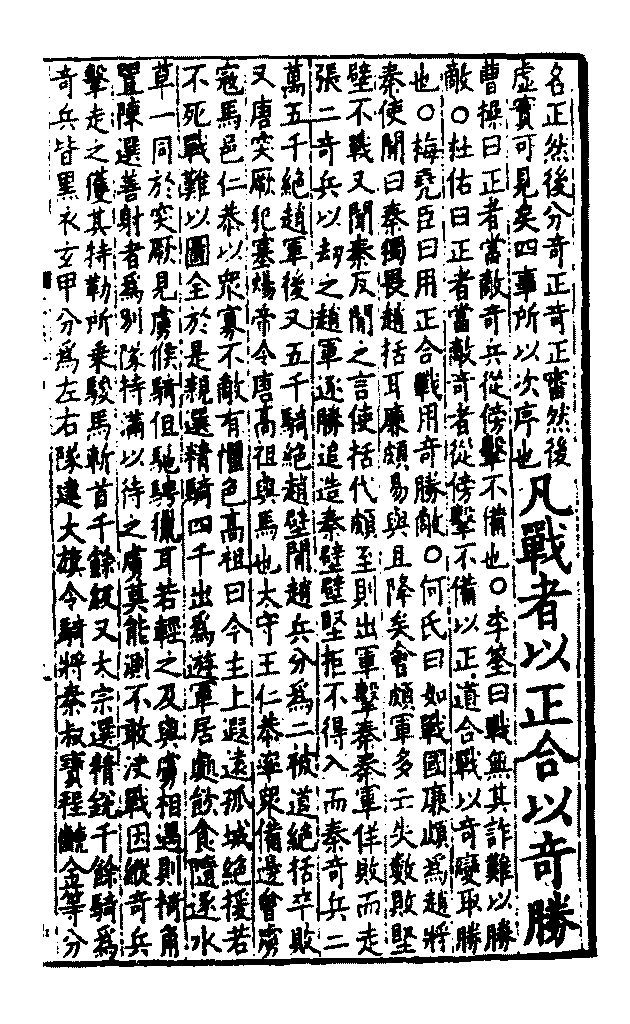 名正然後分奇正奇正審然後
虛實可見矣四事所以次序也
凡戰者以正合以奇勝
曹操曰正者當敵奇兵從傍擊不備也○李筌曰戰無其詐難以勝
敵○杜佑曰正者當敵奇者從傍擊不備以正道合戰以奇變取勝
也○梅堯臣曰用正合戰用奇勝敵○何氏曰如戰國廉頗爲趙將
秦使間曰秦獨畏趙括耳廉頗易與且降矣會頗軍多亡失數敗堅
壁不戰又聞秦反間之言使括代頗至則出軍擊秦秦軍佯敗而走
張二奇兵以刼之趙軍逐勝追造秦壁壁堅拒不得入而秦奇兵二
萬五千絶趙軍後又五千騎絶趙壁間趙兵分爲二被道絶括卒敗
又唐突厥犯塞煬帝令唐高祖與馬也太守王仁恭率衆備邊會虜
寇馬邑仁恭以衆寡不敵有懼色高祖曰今主上遐遠孤城絶援若
不死戰難以圖全於是親選精騎四千出爲遊軍居處飲食隨逐水
草一同於突厥見虜候騎但馳騁獵耳若輕之及與虜相遇則掎角
置陳選善射者爲別隊持滿以待之虜莫能測不敢决戰因縱奇兵
擊走之獲其特勒所乘駿馬斬首千餘級又太宗選精銳千餘騎爲
奇兵皆黑衣玄甲分爲左右隊建大旗令騎將秦叔寶程齩金等分